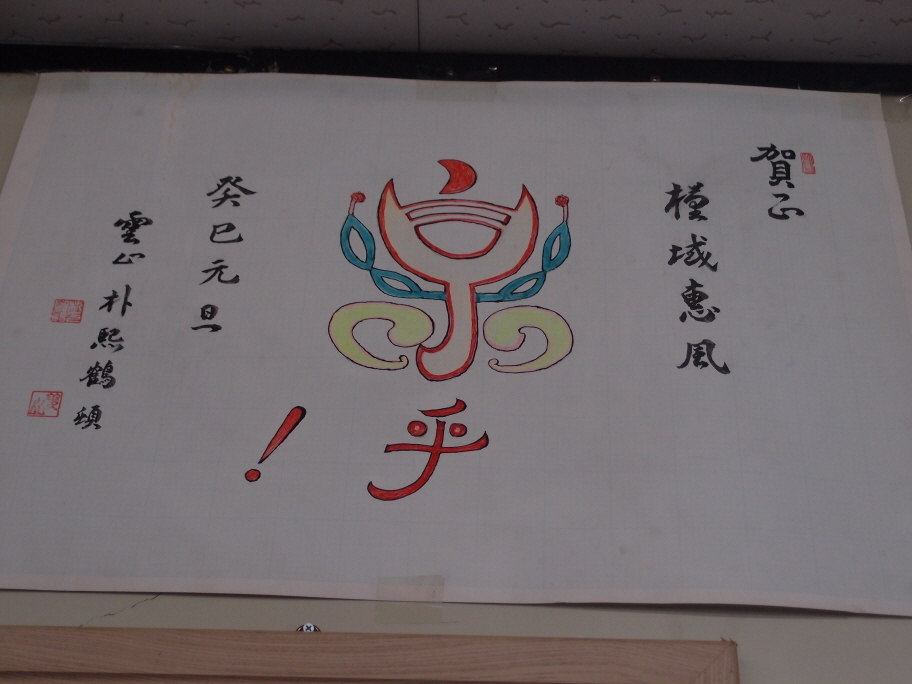 賀正
槿域惠風
樂乎!
癸巳元旦
雲山朴熙鶴頓